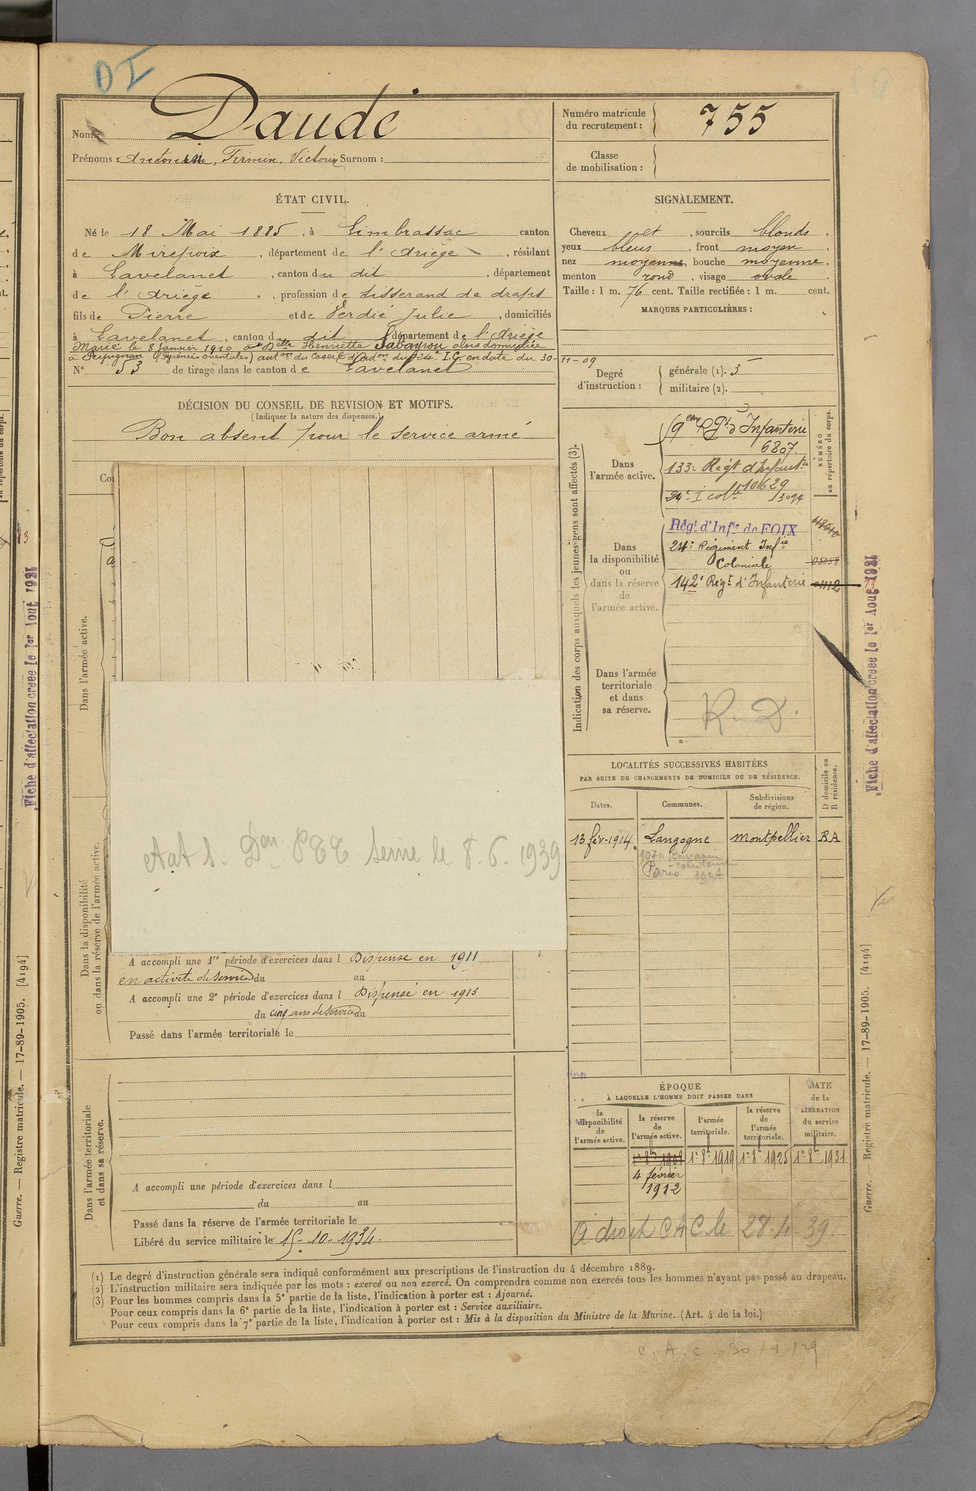 DI
Nom : Daudé
Prénoms : Antonin, Firmin, Victorin Surnom :
Numéro matricule du recrutement : 755
Classe de mobilisation :
ÉTAT CIVIL.
Né le 18 Mai 1885, à Limbrassac canton
de Mirepoix, département de l'Ariège, résidant
à Lavelanet, canton du dit, département
de l'Ariège, profession de tisserand de draps
fils de Pierre et de Verdie Julie, domiciliés
à Lavelanet, canton du dit, département de l'Ariège
Marié le 8 Janvier 1910 à Delle Henriette Sabayrou alors domiciliée
à Perpignan (Pyrénées orientales) auton du Conseil d'Adon du 24e I.C. en date du 30-11-09
N° 53 de tirage dans le canton de Lavelanet
SIGNALEMENT.
Cheveux et, sourcils blonds.
yeux bleus, front moyen
nez moyenne, bouche moyenne,
menton rond, visage ovale
Taille : 1 m. 76 cent. Taille rectifiée : 1 m. cent.
MARQUES PARTICULIÈRES :
Degré d'instruction : générale (1). 3
militaire (2).
DÉCISION DU CONSEIL DE REVISION ET MOTIFS.
(Indiquer la nature des dispenses.)
Bon absent pour le service armé
Co
Dans l'armée active.
Dans la disponibilité
ou dans la réserve de l'armée active.
P.T.T. Seine le 8.6.1939
A accompli une 1re période d'exercices dans l Dispensé en 1911
en activité de service du au
A accompli une 2e période d'exercices dans l Dispensé en 1913
du cinq ans de service au
Passé dans l'armée territoriale le
Dans l'armée territoriale
et dans sa réserve.
A accompli une période d'exercices dans l
du au
Passé dans la réserve de l'armée territoriale le
Libéré du service militaire le 15-10-1934.
Indication des corps auxquels les jeunes gens sont affectés (3).
NUMÉRO
au répertoire du corps.
Dans l'armée active.
9em Rgt d'Infanterie
6807.
133e Régt d'Infantie
10629
24e I colle 13094
Dans la disponibilité ou dans la réserve de l'armée active.
Régt d'Infie de FOIX
24e Régiment Infie
Coloniale
142e Regt d'Infanterie 01112
Dans l'armée territoriale et dans sa réserve.
R. D.
LOCALITÉS SUCCESSIVES HABITÉES
PAR SUITE DE CHANGEMENTS DE DOMICILE OU DE RÉSIDENCE.
Dates. Communes. Subdivisions de région. D domicile ou R résidence.
13 fév. 1914. Langogne Montpellier RA
Paris
ÉPOQUE
À LAQUELLE L'HOMME DOIT PASSER DANS
la disponibilité de l'armée active.
la réserve de l'armée active.
l'armée territoriale.
la réserve de l'armée territoriale.
DATE de la LIBÉRATION du service militaire.
1er 8bre 1908 1er 8bre 1919 1er 8bre 1925 1er 8bre 1931
4 février
1912
A droit CAC le 28.4.39.
(1) Le degré d'instruction générale sera indiqué conformément aux prescriptions de l'instruction du 4 décembre 1889.
(2) L'instruction militaire sera indiquée par les mots : exercé ou non exercé. On comprendra comme non exercés tous les hommes n'ayant pas passé au drapeau.
(3) Pour les hommes compris dans la 5e partie de la liste, l'indication à porter est : Ajourné.
Pour ceux compris dans la 6e partie de la liste, l'indication à porter est : Service auxiliaire.
Pour ceux compris dans la 7e partie de la liste, l'indication à porter est : Mis à la disposition du Ministre de la Marine. (Art. 4 de la loi.)
Fiche d'affectation créée le 1er Août 1921
Fiche d'affectation créée le 1er Août 1921
Guerre. — Registre matricule. — 17-89-1905. [4194]
Guerre. — Registre matricule. — 17-89-1905. [4194]